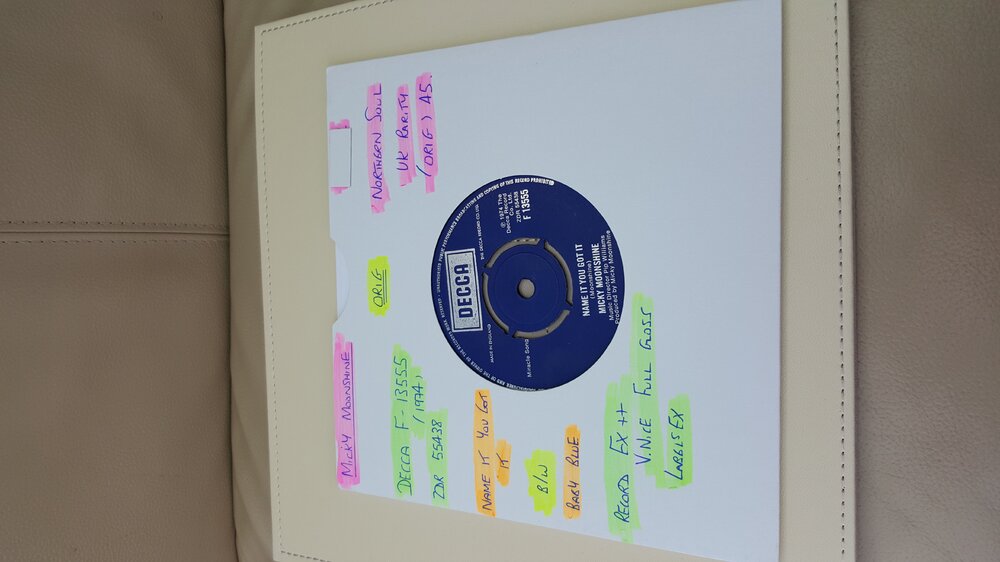 MICKY MOONSHINE
ORIG
NORTHERN SOUL
UK RARITY
(ORIG) AS.
DECCA F-13555
(1974)
ZDR 55438
NAME IT YOU GOT
IT
B/W
BABY BLUE
RECORD EX ++
V.NICE FULL GLOSS
LABELS EX
DECCA
THE DECCA RECORD CO. LTD.
MADE IN ENGLAND
Miracle Song
℗ 1974 The
Decca Record
Co. Ltd.
ZDR 55438
F 13555
NAME IT YOU GOT IT
(Moonshine)
MICKY MOONSHINE
Music Director Pip Williams
Produced by Micky Moonshine